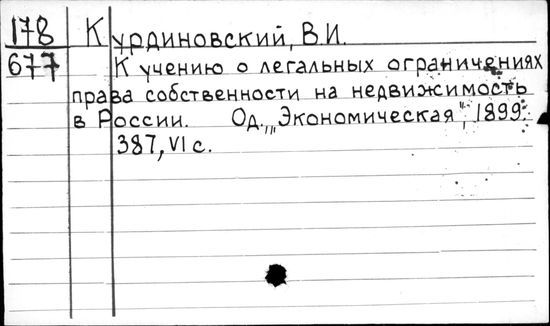 178 Курдиновский, В.И.
677 К учению о легальных ограничениях
права собственности на недвижимость
в России. Од., „Экономическая", 1899.
387, VI с.